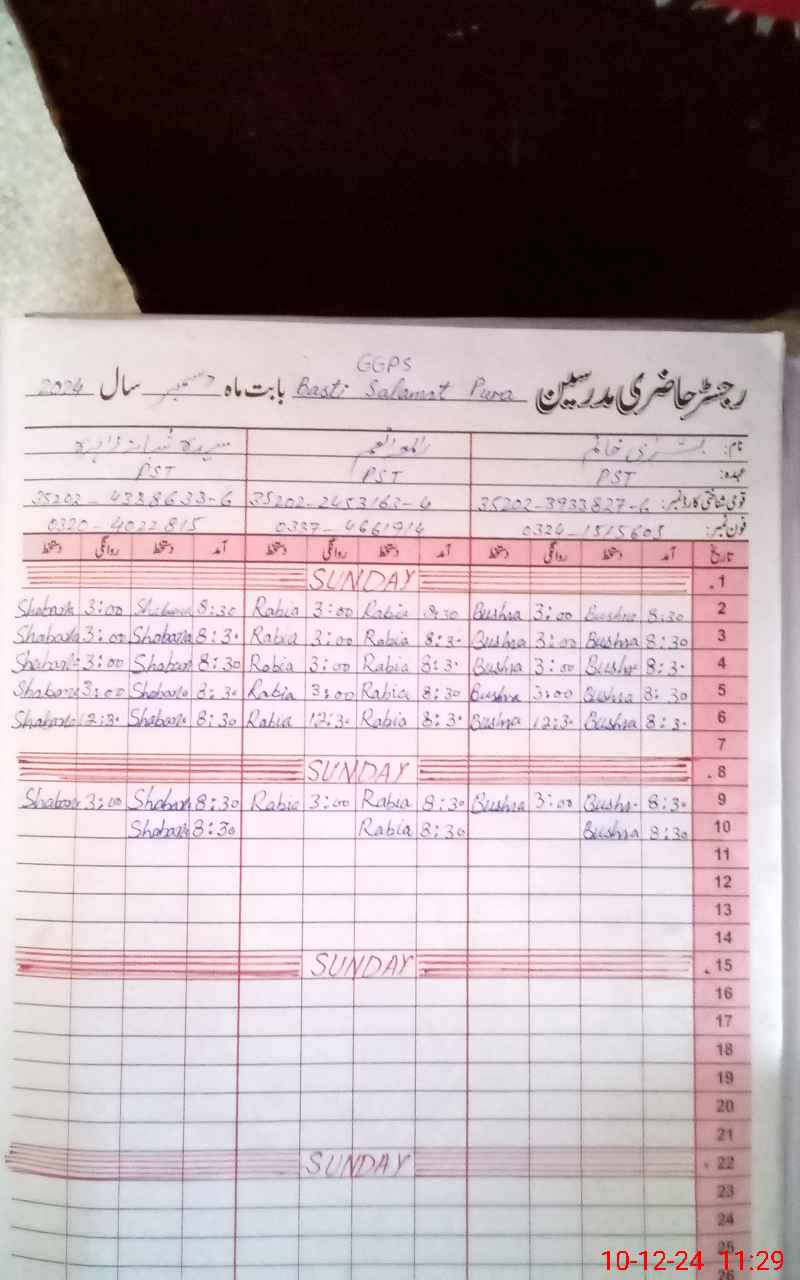 GGPS
رجسٹر حاضری مدرسین Basti Salamat Pura بابت ماہ دسمبر سال 2024
نام: بشریٰ خانم
عہدہ: PST PST PST
قومی شناختی کارڈ نمبر: 35202-3933827-6 35202-2453163-4 35202-4338633-6
فون نمبر: 0324-1515605 0337-4661914 0320-4022815
تاریخ آمد دستخط روانگی دستخط آمد دستخط روانگی دستخط آمد دستخط روانگی دستخط
1 SUNDAY
2 8:30 Bushra 3:00 Bushra 8:30 Rabia 3:00 Rabia 8:30 Shabana 3:00 Shabana
3 8:30 Bushra 3:00 Bushra 8:30 Rabia 3:00 Rabia 8:30 Shabana 3:00 Shabana
4 8:30 Bushra 3:00 Bushra 8:30 Rabia 3:00 Rabia 8:30 Shabana 3:00 Shabana
5 8:30 Bushra 3:00 Bushra 8:30 Rabia 3:00 Rabia 8:30 Shabana 3:00 Shabana
6 8:30 Bushra 12:30 Bushra 8:30 Rabia 12:30 Rabia 8:30 Shabana 12:30 Shabana
7
8 SUNDAY
9 8:30 Bushra 3:00 Bushra 8:30 Rabia 3:00 Rabia 8:30 Shabana 3:00 Shabana
10 8:30 Bushra 8:30 Rabia 8:30 Shabana
11
12
13
14
15 SUNDAY
16
17
18
19
20
21
22 SUNDAY
23
24
25
26
10-12-24 11:29